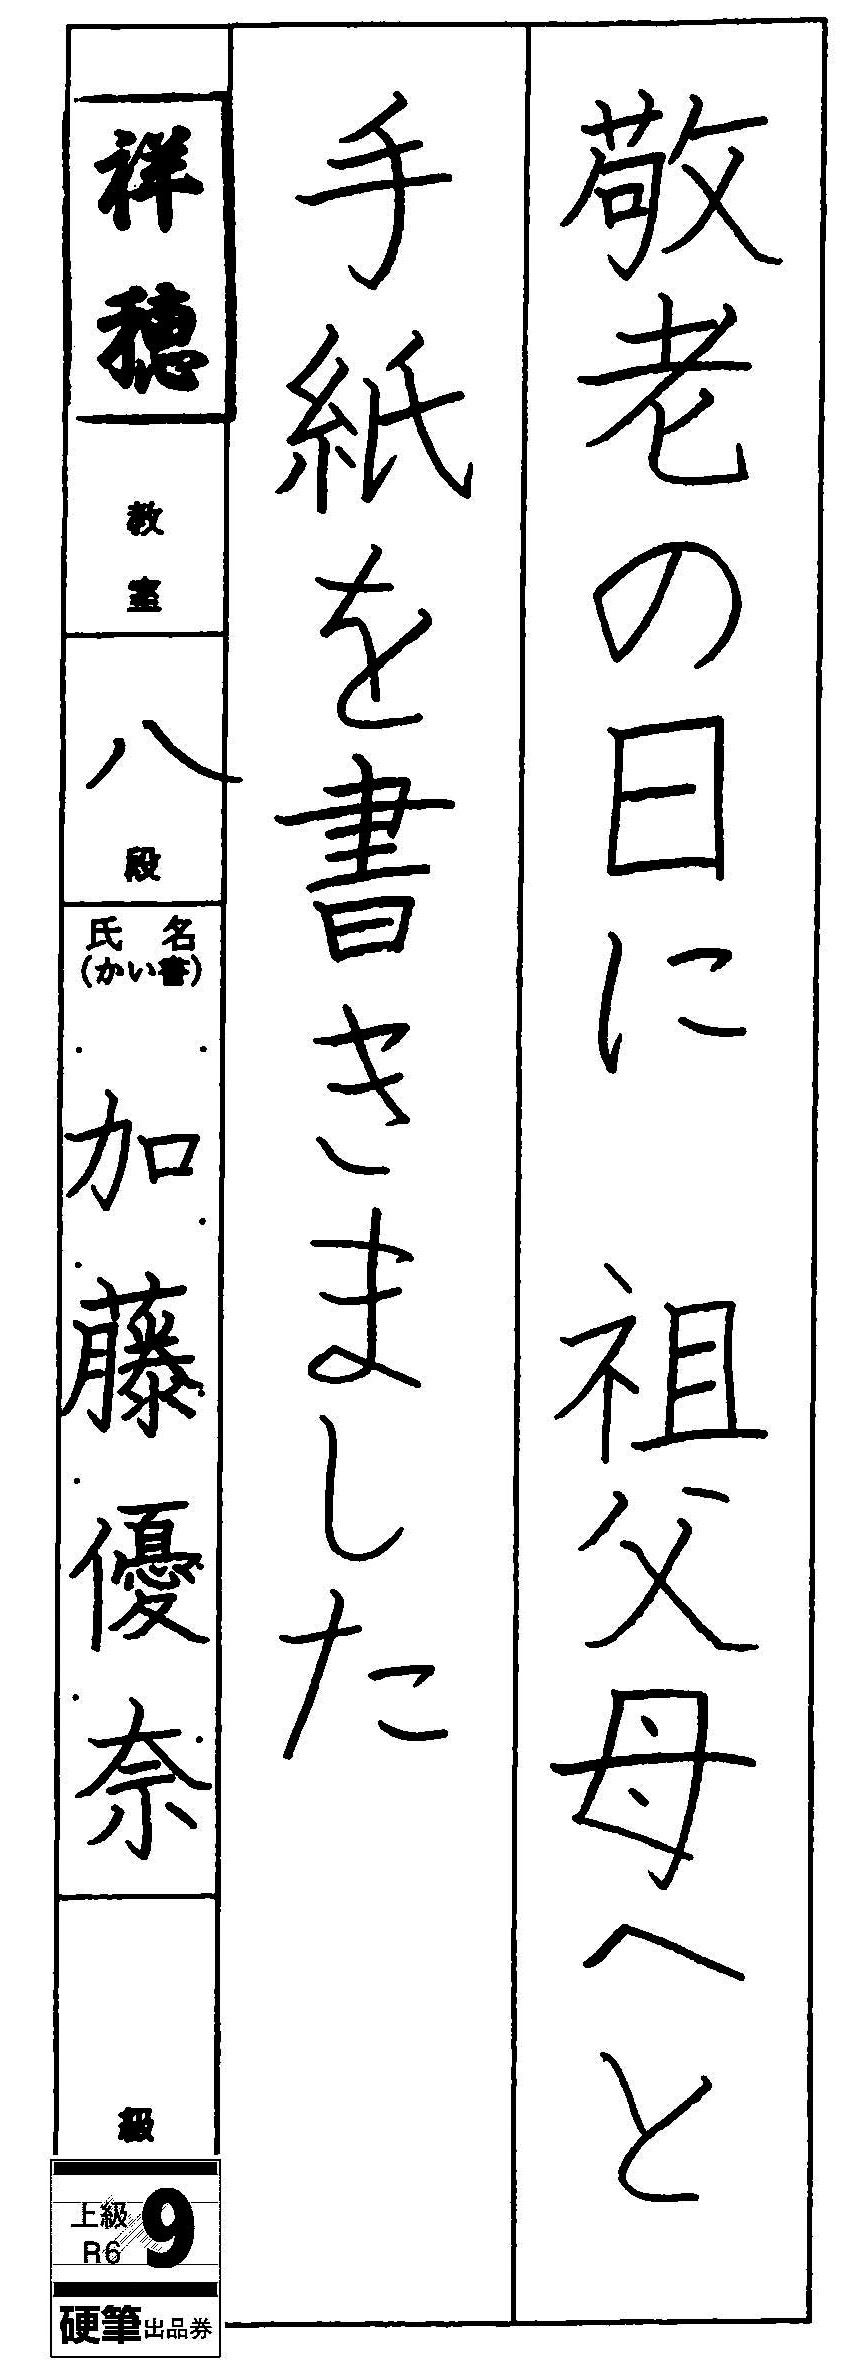 敬老の日に　祖父母へと
手紙を書きました
祥穂
教室
八
段
氏名
(かい書)
加藤優奈
級
上級
R6
9
硬筆出品券